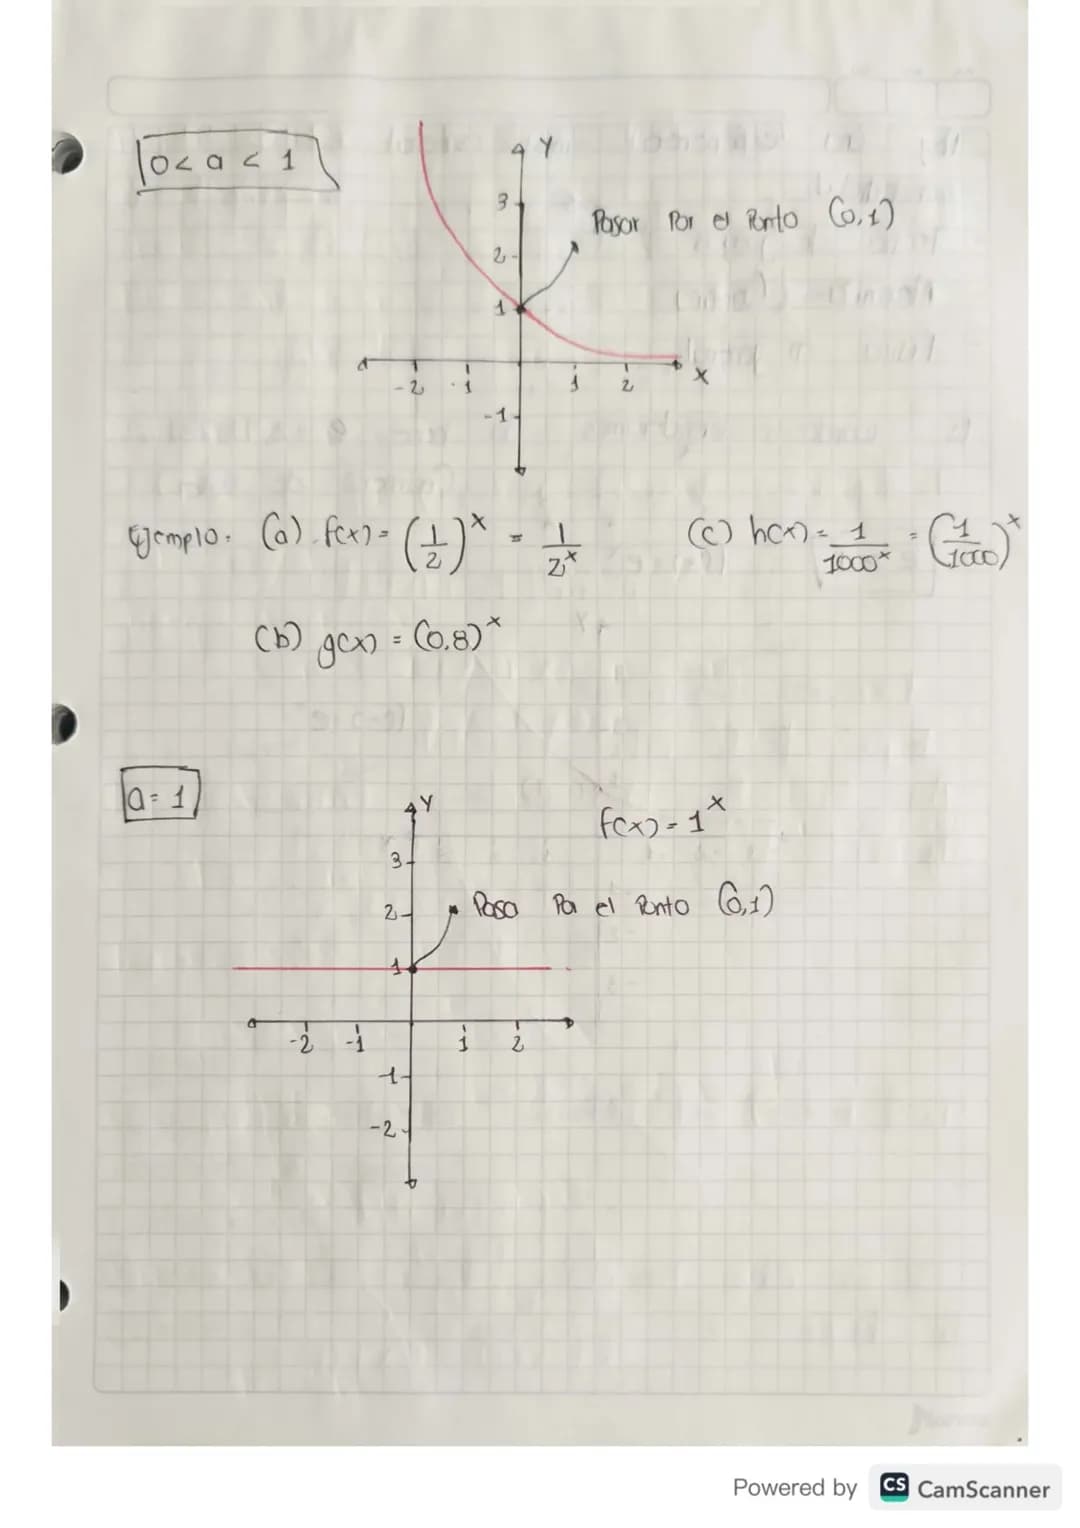 0 < a < 1
Y
3
Pasar Por el Punto (0,1)
2
1
-2 -1 1 2 X
-1
Ejemplo. (a) f(x) = (1/2)^x = 1/2^x (c) h(x) = 1/1000^x = (1/1000)^x
(b) g(x) = (0,8)^x
a = 1
Y
f(x) = 1^x
3
2 Pasa Por el Punto (0,1)
1
-2 -1 1 2
-1
-2
Norma
Powered by CS CamScanner